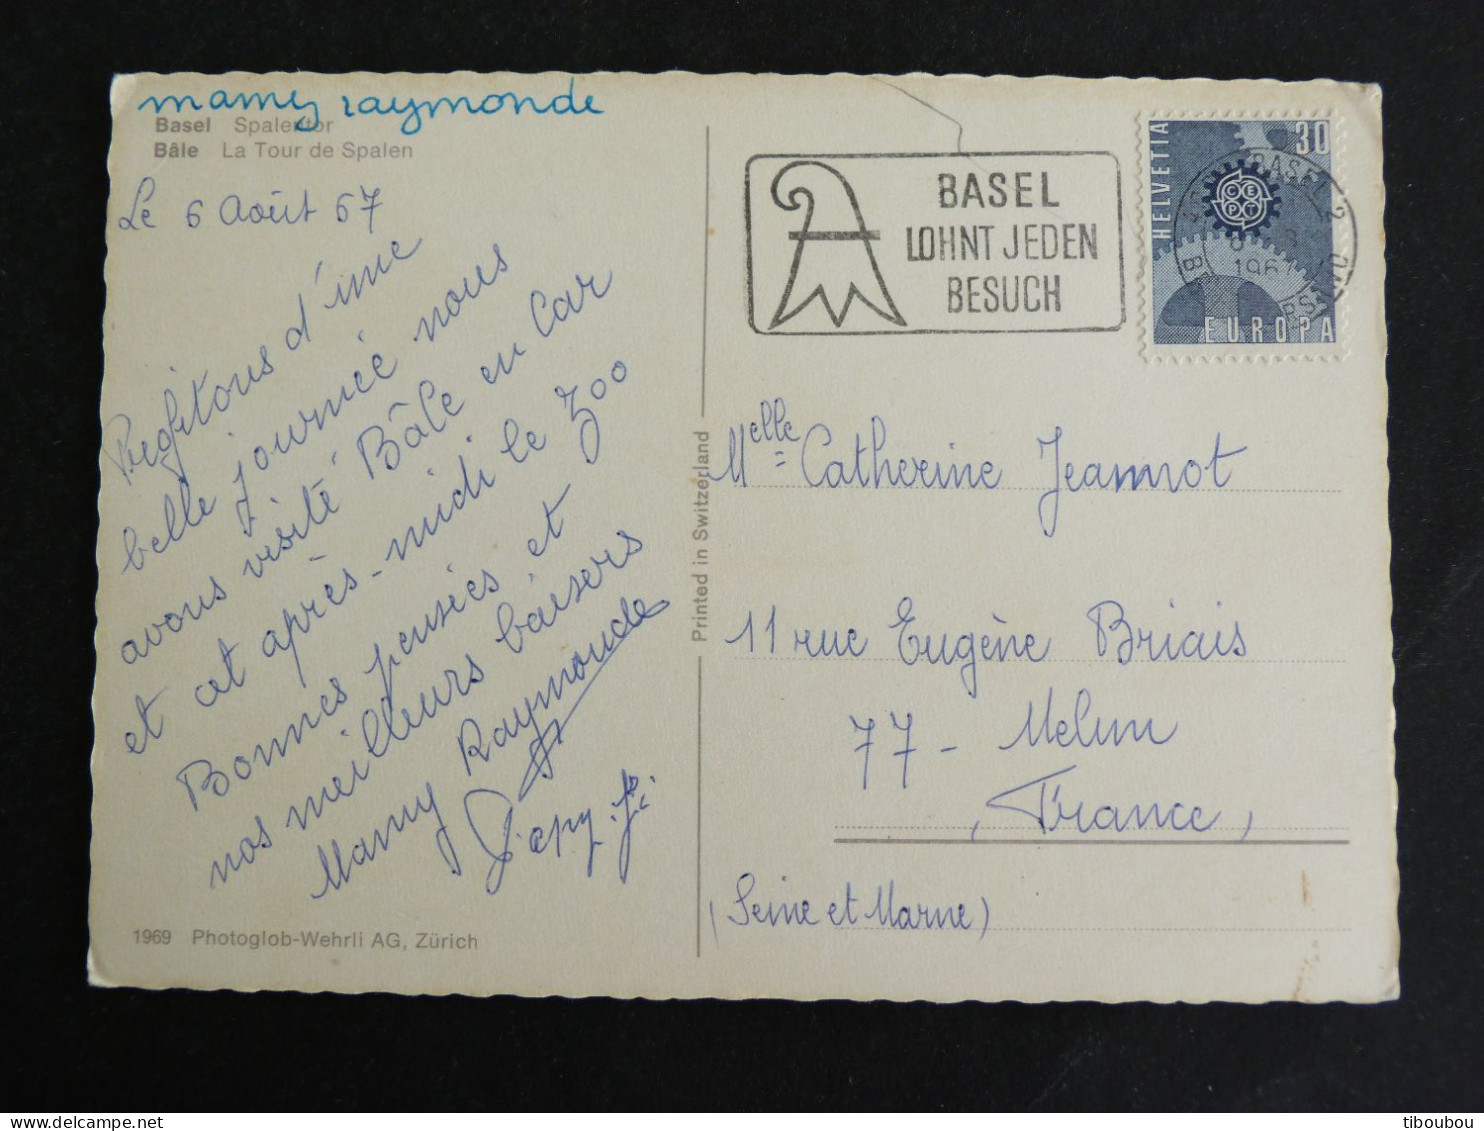 mamy raymonde
Basel Spalentor
Bâle La Tour de Spalen
Le 6 Août 67
Profitons d'une
belle journée nous
avons visité Bâle en Car
et cet après-midi le Zoo
Bonnes pensées et
nos meilleurs baisers
Mamy Raymonde
Papy
1969 Photoglob-Wehrli AG, Zürich
Printed in Switzerland
BASEL
LOHNT JEDEN
BESUCH
HELVETIA
30
CEPT
EUROPA
BASEL 2
1967
Melle Catherine Jeannot
11 rue Eugène Briais
77 - Melun
, France,
(Seine et Marne)
tiboubou / delcampe.net